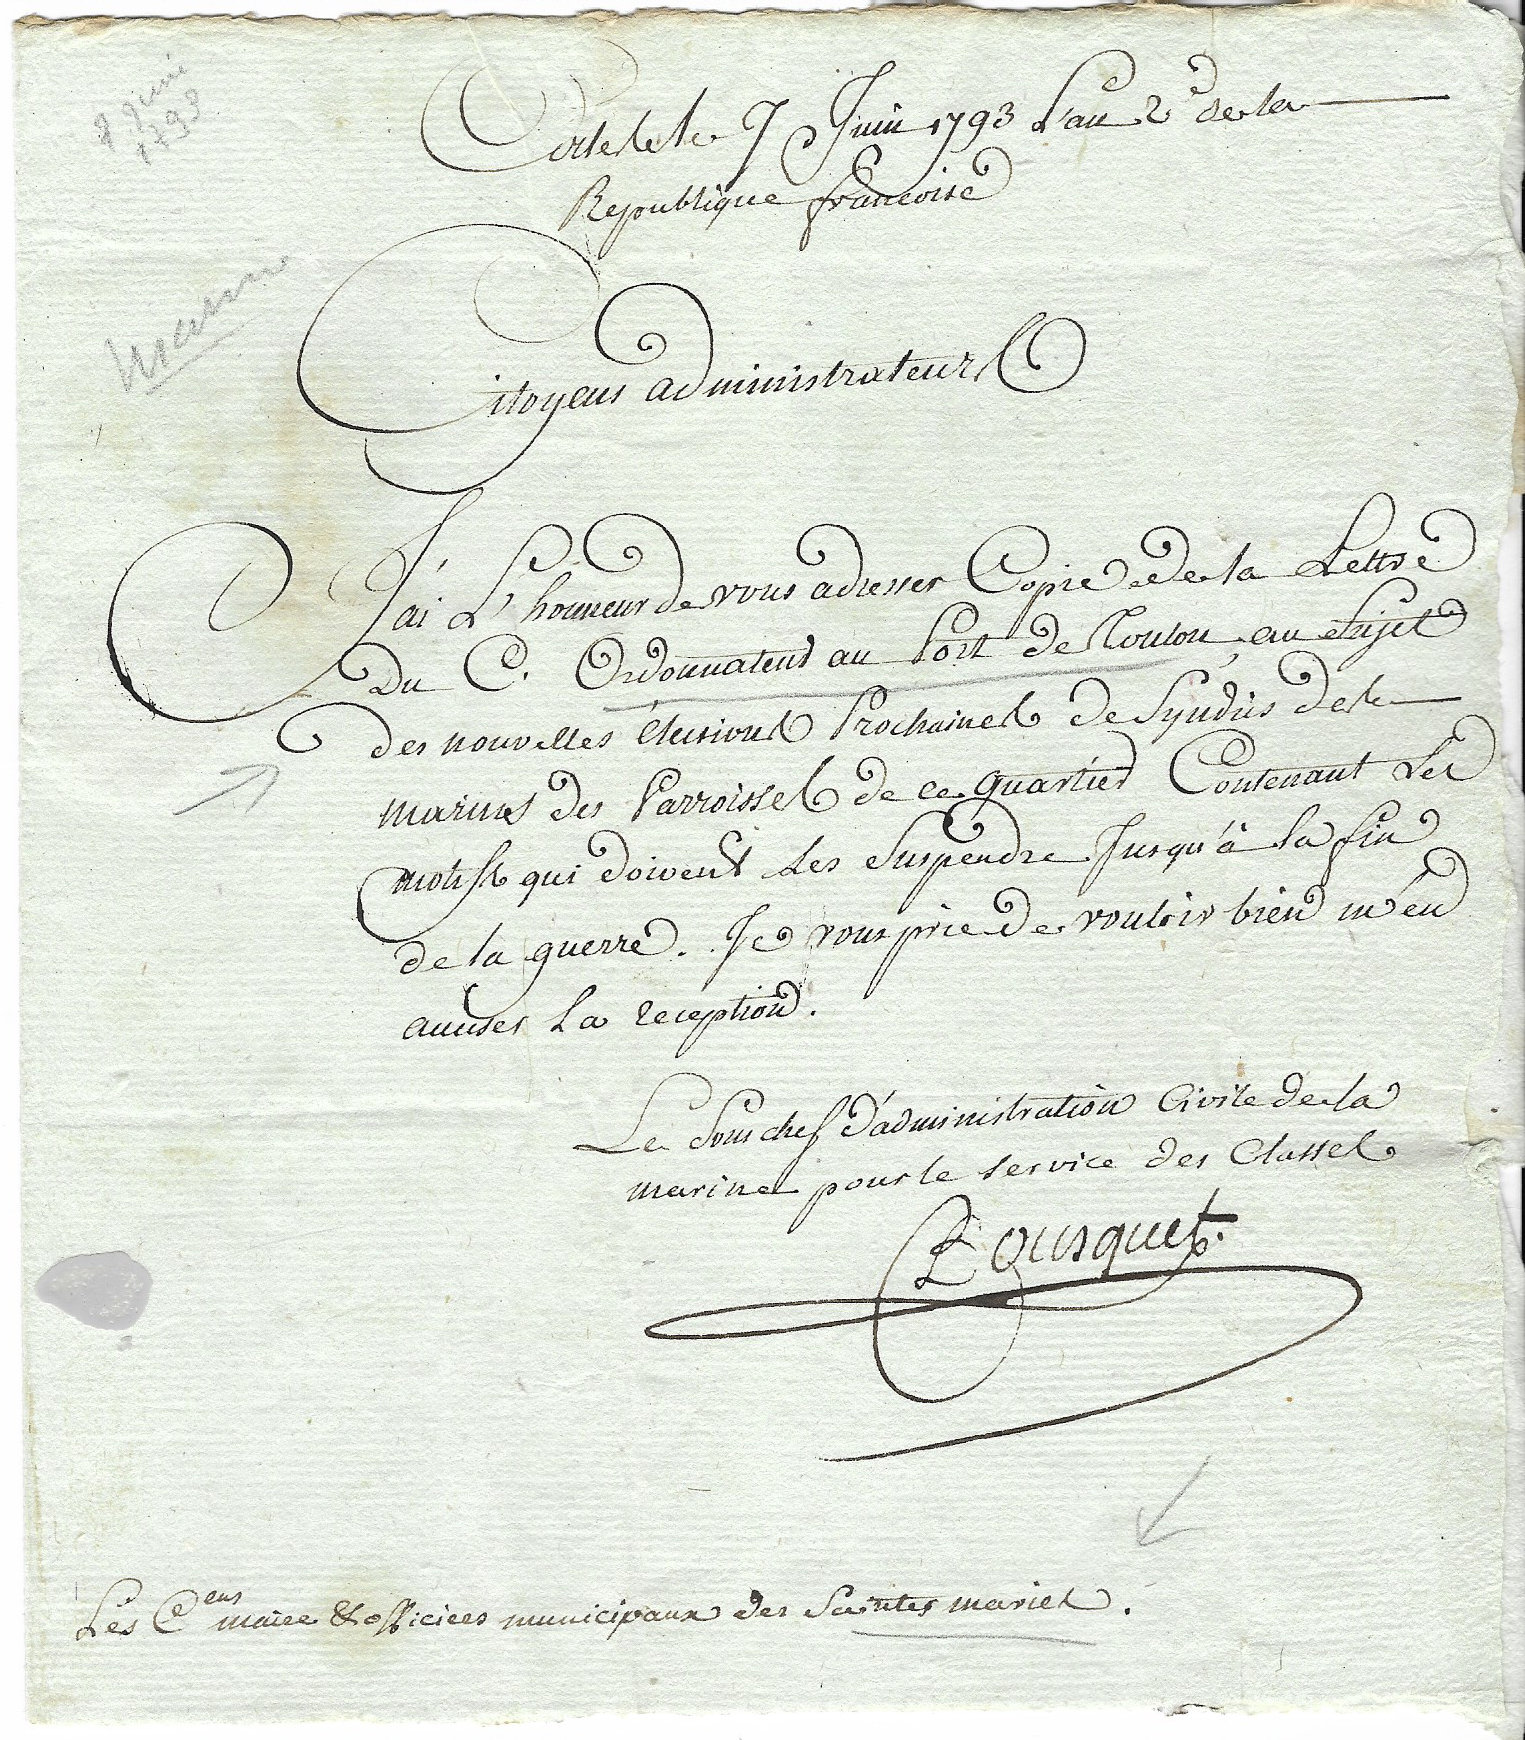 7 Juin
1793
Arles le 7 Juin 1793 L'an 2e de la
Republique francoise
Citoyens administrateurs
J'ai L'honneur de vous adresser Copie de la Lettre
Du C. Ordonnateur au Port de Toulon, au Sujet
des nouvelles élections Prochaines de Syndics des
marins des Parroisses de ce quartier Contenant Les
motifs qui doivent Les Suspendre Jusqu'à la fin
de la guerre. Je vous prie de vouloir bien m'en
accuser La reception.
Le Sous chef d'administration Civile de la
marine pour le service des Classes
Bousquet.
Les Cens maire & officiers municipaux des Saintes maries.